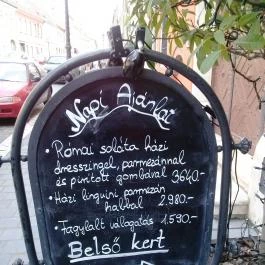 Napi Ajánlat
• Római saláta házi
dresszingel, parmezánnal
és pirított gombával 3640.-
• Házi linguini parmezán
habbal 2.980.-
• Fagylalt válogatás 1.590.-
Belső kert